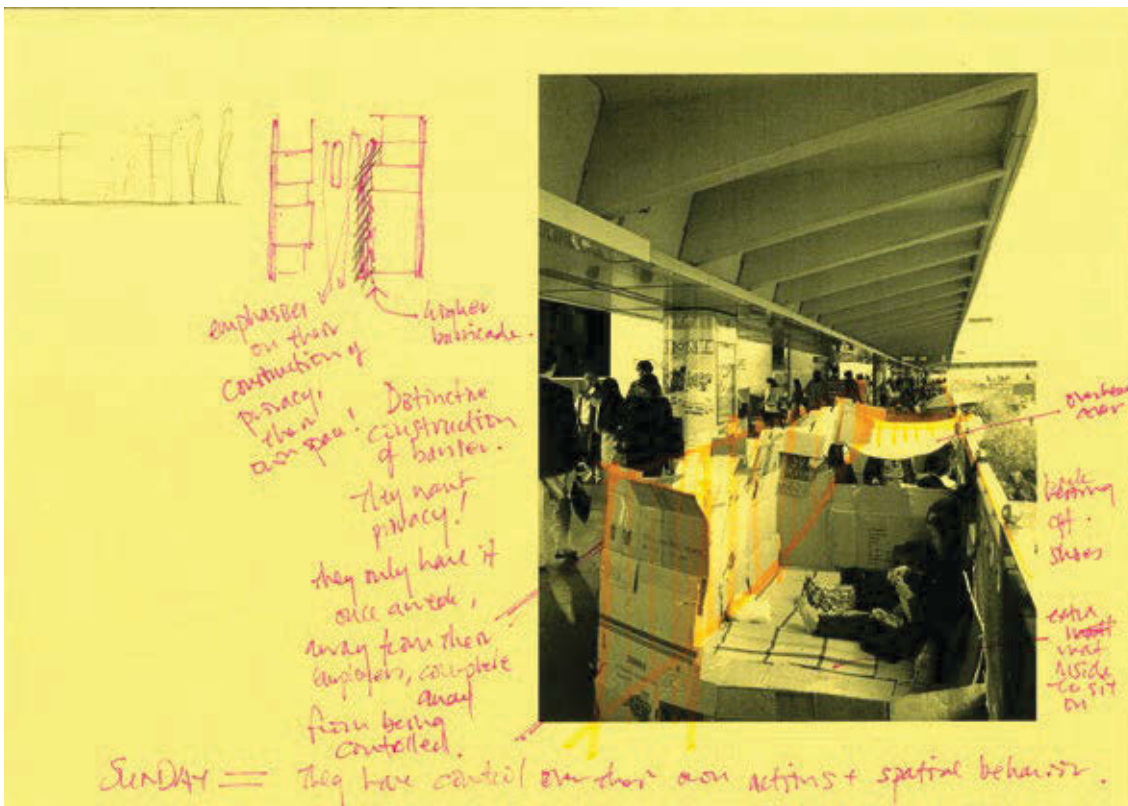 emphasises
on their
construction of
privacy,
their
own space!
higher
barricade.
Distinctive
construction
of barrier.
They want
privacy!
they only have it
once a week,
away from their
employers, complete
away
from being
controlled.
overhead
cover
leaning
off.
shoes
extra
mat
inside
to sit
on
SUNDAY = They have control over their own actions + spatial behavior.